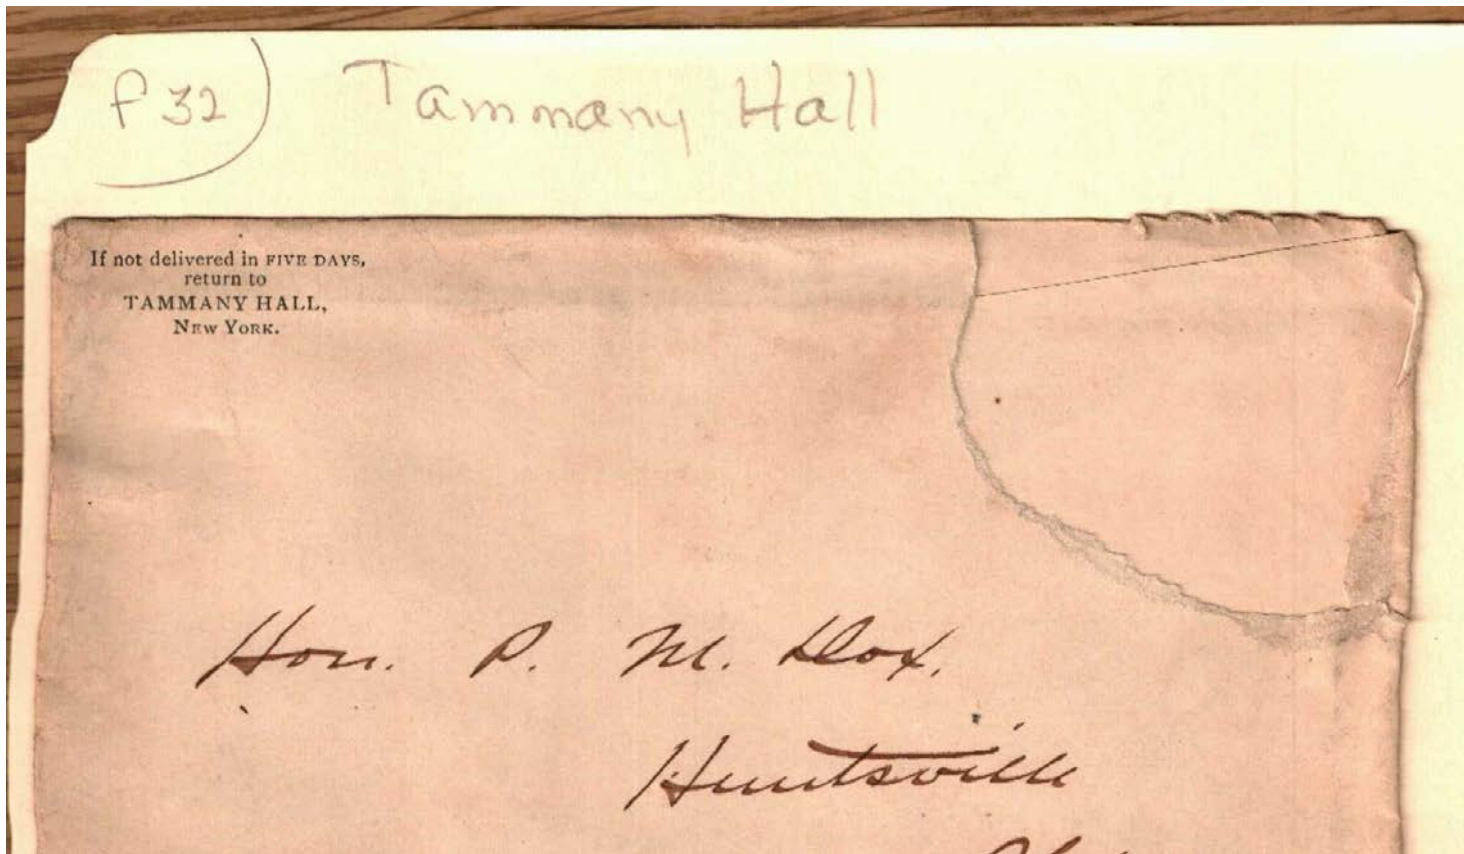 f 32) Tammany Hall
If not delivered in FIVE DAYS,
return to
TAMMANY HALL,
NEW YORK.
Hon. P. M. Dox.
Huntsville